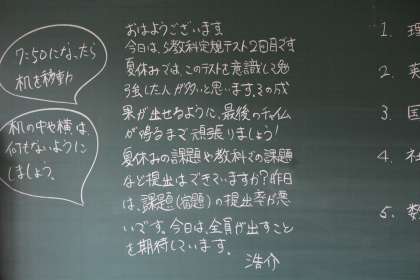 7:50になったら
机を移動
机の中や横は、
何もないように
しましょう。
おはようございます。
今日は、5教科定規テスト2回目です
夏休みでは、このテストを意識して勉
強した人が多いと思います。その成
果が出せるように、最後のチャイム
が鳴るまで頑張りましょう!
夏休みの課題や教科での課題
など提出はできていますか?昨日
は、課題(宿題)の提出率が悪
いです。今日は、全員が出すこと
を期待しています。
浩介
1. 理
2. 英
3. 国
4. 社
5. 数